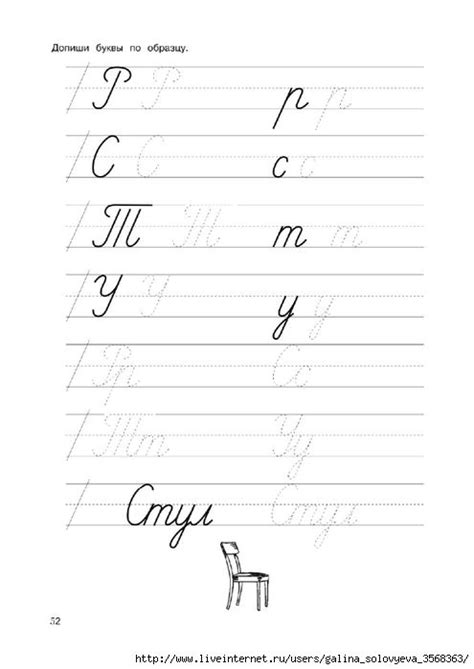 Допиши буквы по образцу.
Р Р р р
С С с с
Т Т т т
У У у у
Рр Сс
Тт Уу
Стул Стул
52
http://www.liveinternet.ru/users/galina_solovyeva_3568363/